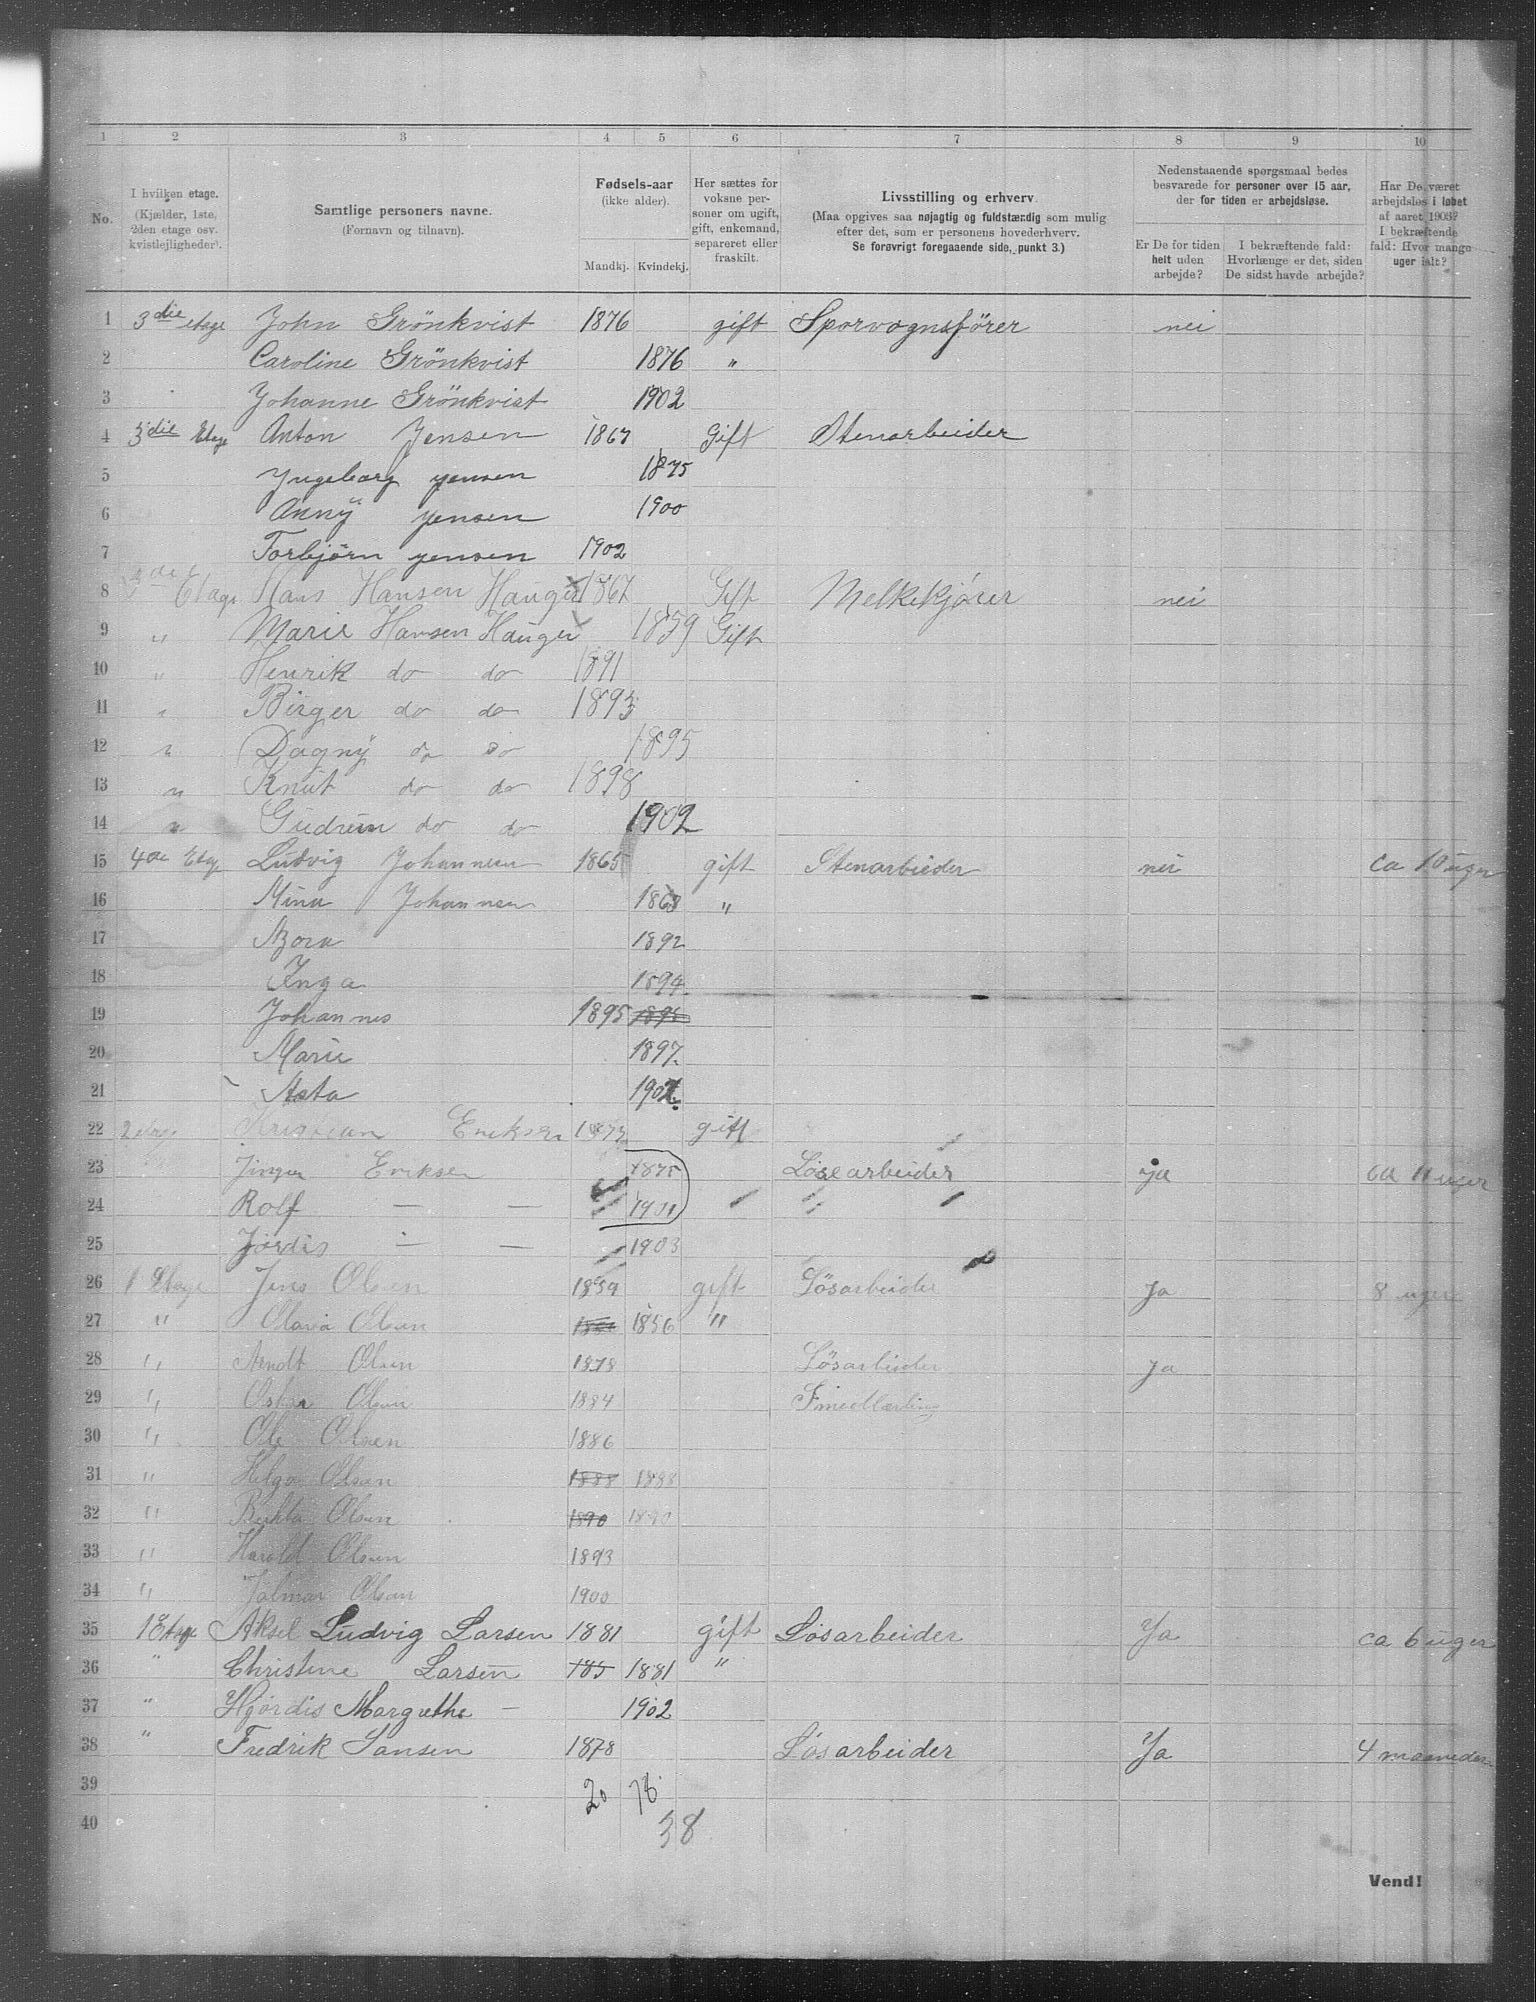 1 2 3 4 5 6 7 8 9 10
No.
I hvilken etage.
(Kjælder, 1ste,
2den etage osv.
kvistlejligheder).
Samtlige personers navne.
(Fornavn og tilnavn).
Fødsels-aar
(ikke alder).
Mandkj. Kvindekj.
Her sættes for
voksne per-
soner om ugift,
gift, enkemand,
separeret eller
fraskilt.
Livsstilling og erhverv.
(Maa opgives saa nøjagtig og fuldstændig som mulig
efter det, som er personens hovederhverv.
Se forøvrigt foregaaende side, punkt 3.)
Nedenstaaende spørgsmaal bedes
besvarede for personer over 15 aar,
der for tiden er arbejdsløse.
Er De for tiden
helt uden
arbejde?
I bekræftende fald:
Hvorlænge er det, siden
De sidst havde arbejde?
Har De været
arbejdsløs i løbet
af aaret 1903?
I bekræftende
fald: Hvor mange
uger ialt?
1 3die etage John Grönkvist 1876 gift Sporvognsförer nei
2 Caroline Grönkvist 1876 "
3 Johanne Grönkvist 1902
4 3die Etage Anton Jensen 1867 Gift Stenarbeider
5 Yngeborg yensen 1875
6 Anny yensen 1900
7 Torbjörn yensen 1902
8 3die Etage Hans Hansen Hauger 1867 Gift Melkekjører nei
9 " Marie Hansen Hauger 1859 Gift
10 " Henrik do do 1891
11 " Birger do do 1893
12 " Dagny do do 1895
13 " Knut do do 1898
14 " Gudrun do do 1902
15 4de Etg Ludvig Johannesen 1865 gift Stenarbieder nei ca 10 uger
16 Mina Johannesen 1863 "
17 Azora 1892
18 Inga 1894
19 Johannes 1895 1895
20 Marie 1897
21 Asta 1902
22 2 etag Kristian Eriksen 1873 gift
23 Jinger Eriksen 1875 Löse arbeider ja ca 11 uger
24 Rolf — — 1901
25 Jördis — — 1903
26 1 Etage Jens Olsen 1859 gift Lösarbeider Ja 8 uger
27 " Olava Olsen 1856 "
28 " Arndt Olsen 1878 Lösarbeider Ja
29 " Oskar Olsen 1884 Smedlærling
30 " Ole Olsen 1886
31 " Helga Olsen 1888 1888
32 " Berta Olsen 1890 1890
33 " Harold Olsen 1893
34 " Jalmar Olsen 1900
35 1 Etage Aksel Ludvig Larsen 1881 gift Losarbeider Ja ca 6 uger
36 " Christine Larsen 185 1881 "
37 " Hjørdis Margrethe — 1902
38 " Fredrik Jansen 1878 Løsarbeider Ja 4 maaneder
39 20 18
40 38
Vend!